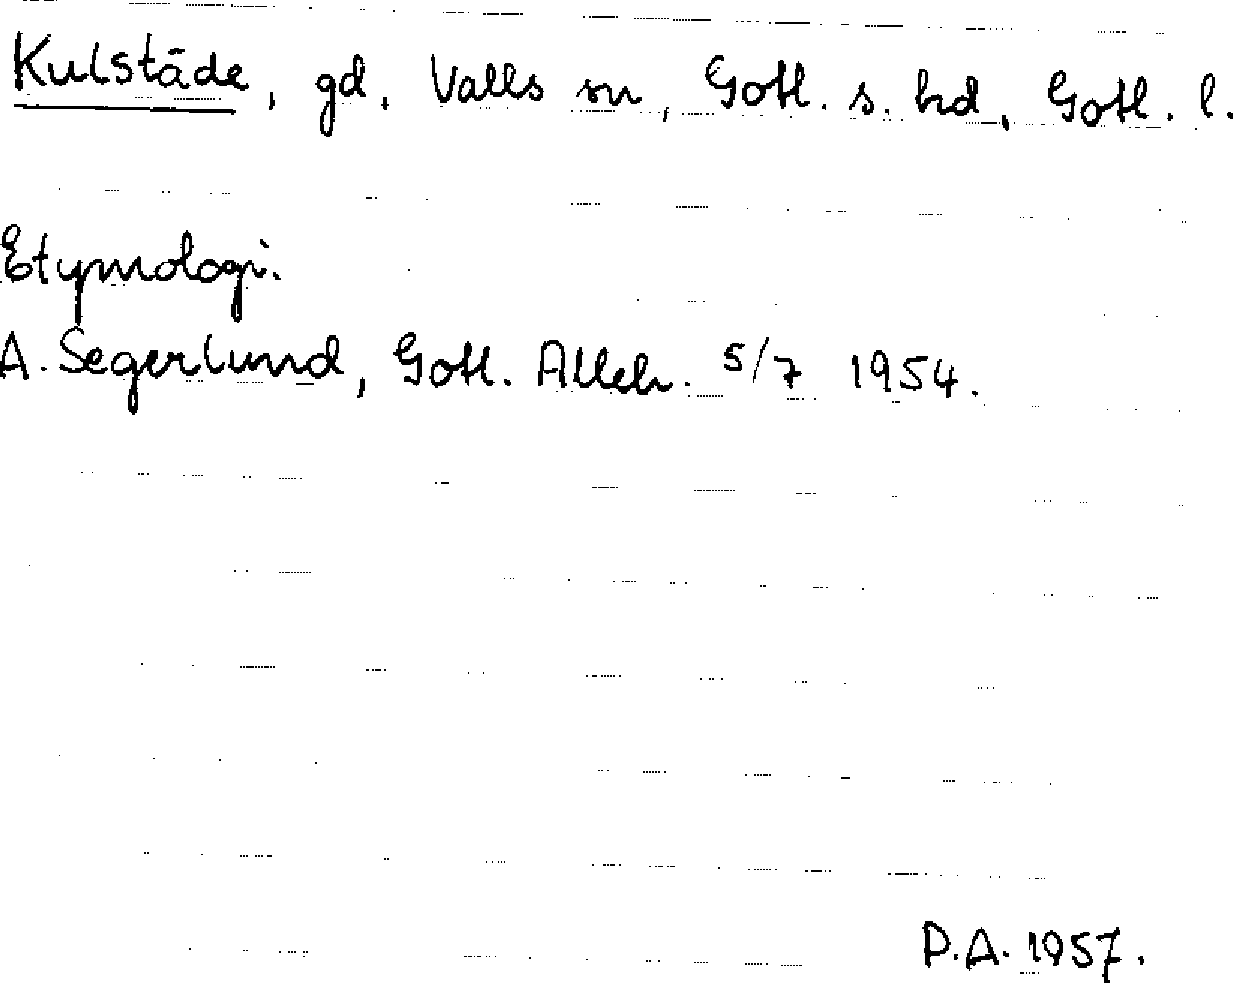 Kulstäde, gd, Valls sn, Gotl. s. hd, Gotl. l.
Etymologi.
A. Segerlund, Gotl. Alleh. 5/7 1954.
P.A. 1957.